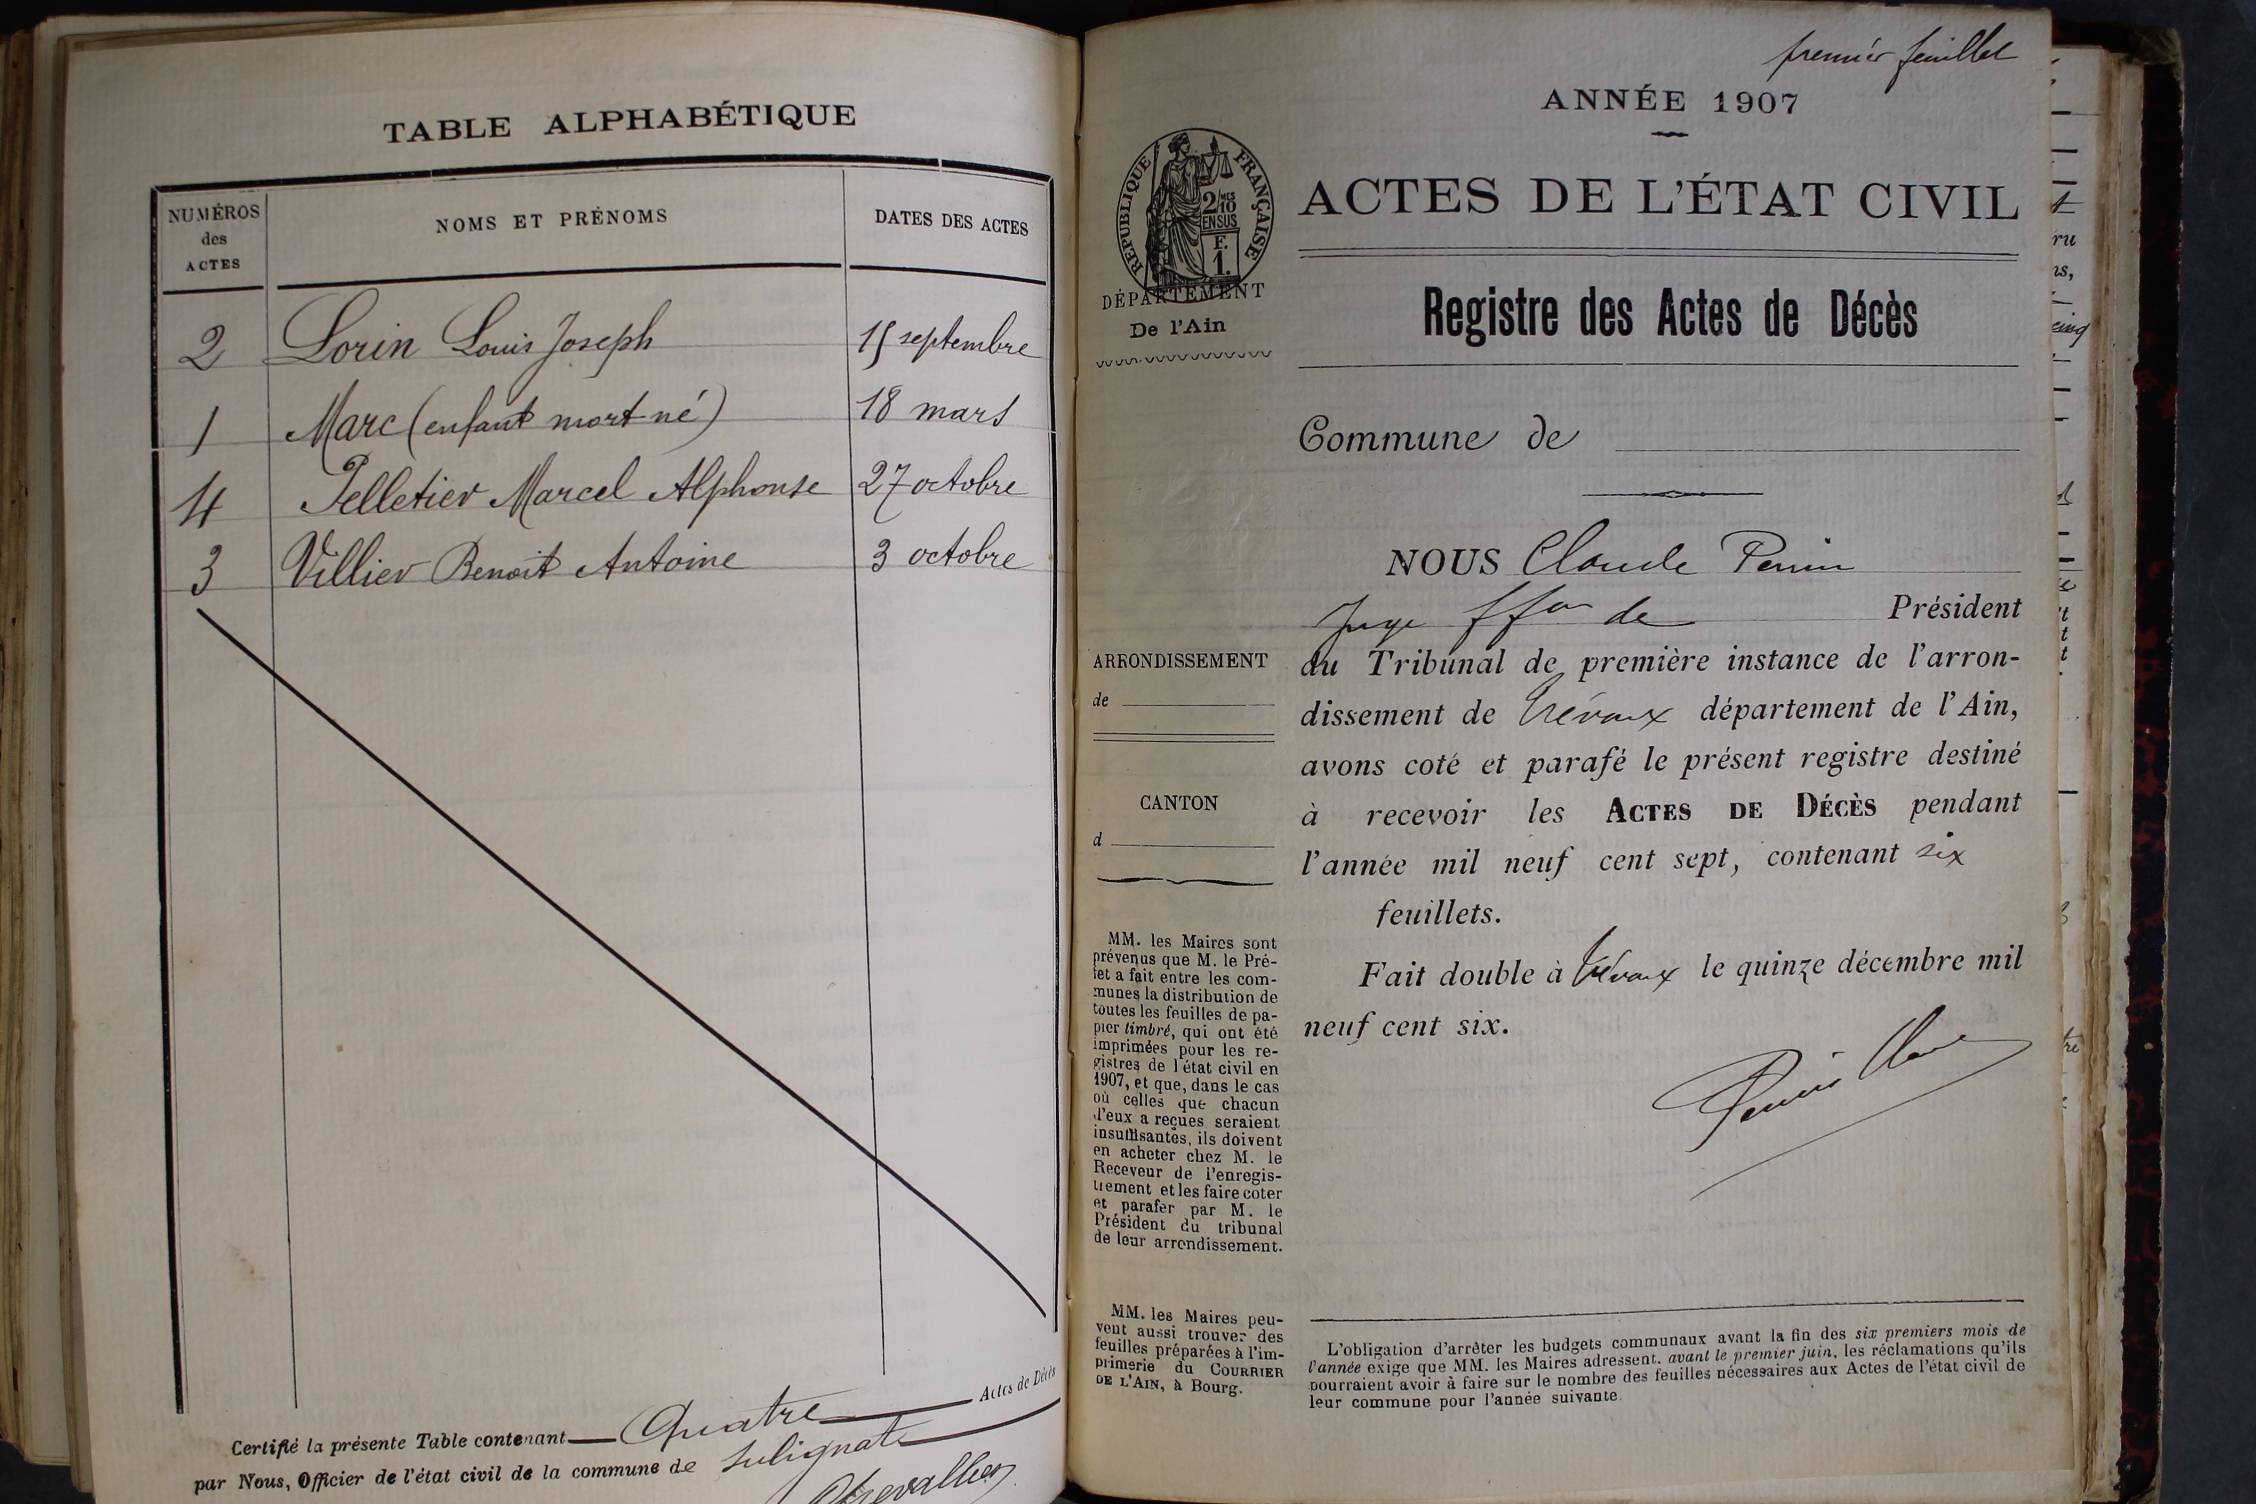 TABLE ALPHABÉTIQUE
NUMÉROS des ACTES NOMS ET PRÉNOMS DATES DES ACTES
2 Lorin Louis Joseph 15 septembre
1 Marc (enfant mort-né) 18 mars
4 Pelletier Marcel Alphonse 27 octobre
3 Villier Benoit Antoine 3 octobre
Certifié la présente Table contenant Quatre Actes de Décès
par Nous, Officier de l'état civil de la commune de Sulignat
Chevallier
premier feuillet
ANNÉE 1907
RÉPUBLIQUE FRANÇAISE
2/10 MES
EN SUS
F.
1.
DÉPARTEMENT
De l'Ain
ACTES DE L'ÉTAT CIVIL
Registre des Actes de Décès
Commune de
NOUS Claude Perrin
Juge ffon de Président
ARRONDISSEMENT
de
CANTON
d
du Tribunal de première instance de l'arron-
dissement de Trévoux département de l'Ain,
avons coté et parafé le présent registre destiné
à recevoir les ACTES DE DÉCÈS pendant
l'année mil neuf cent sept, contenant six
feuillets.
Fait double à Trévoux le quinze décembre mil
neuf cent six.
Perrin Claude
MM. les Maires sont
prévenus que M. le Pré-
fet a fait entre les com-
munes la distribution de
toutes les feuilles de pa-
pier timbré, qui ont été
imprimées pour les re-
gistres de l'état civil en
1907, et que, dans le cas
où celles que chacun
d'eux a reçues seraient
insuffisantes, ils doivent
en acheter chez M. le
Receveur de l'enregis-
trement et les faire coter
et parafer par M. le
Président du tribunal
de leur arrondissement.
MM. les Maires peu-
vent aussi trouver des
feuilles préparées à l'im-
primerie du COURRIER
DE L'AIN, à Bourg.
L'obligation d'arrêter les budgets communaux avant la fin des six premiers mois de
l'année exige que MM. les Maires adressent, avant le premier juin, les réclamations qu'ils
pourraient avoir à faire sur le nombre des feuilles nécessaires aux Actes de l'état civil de
leur commune pour l'année suivante.